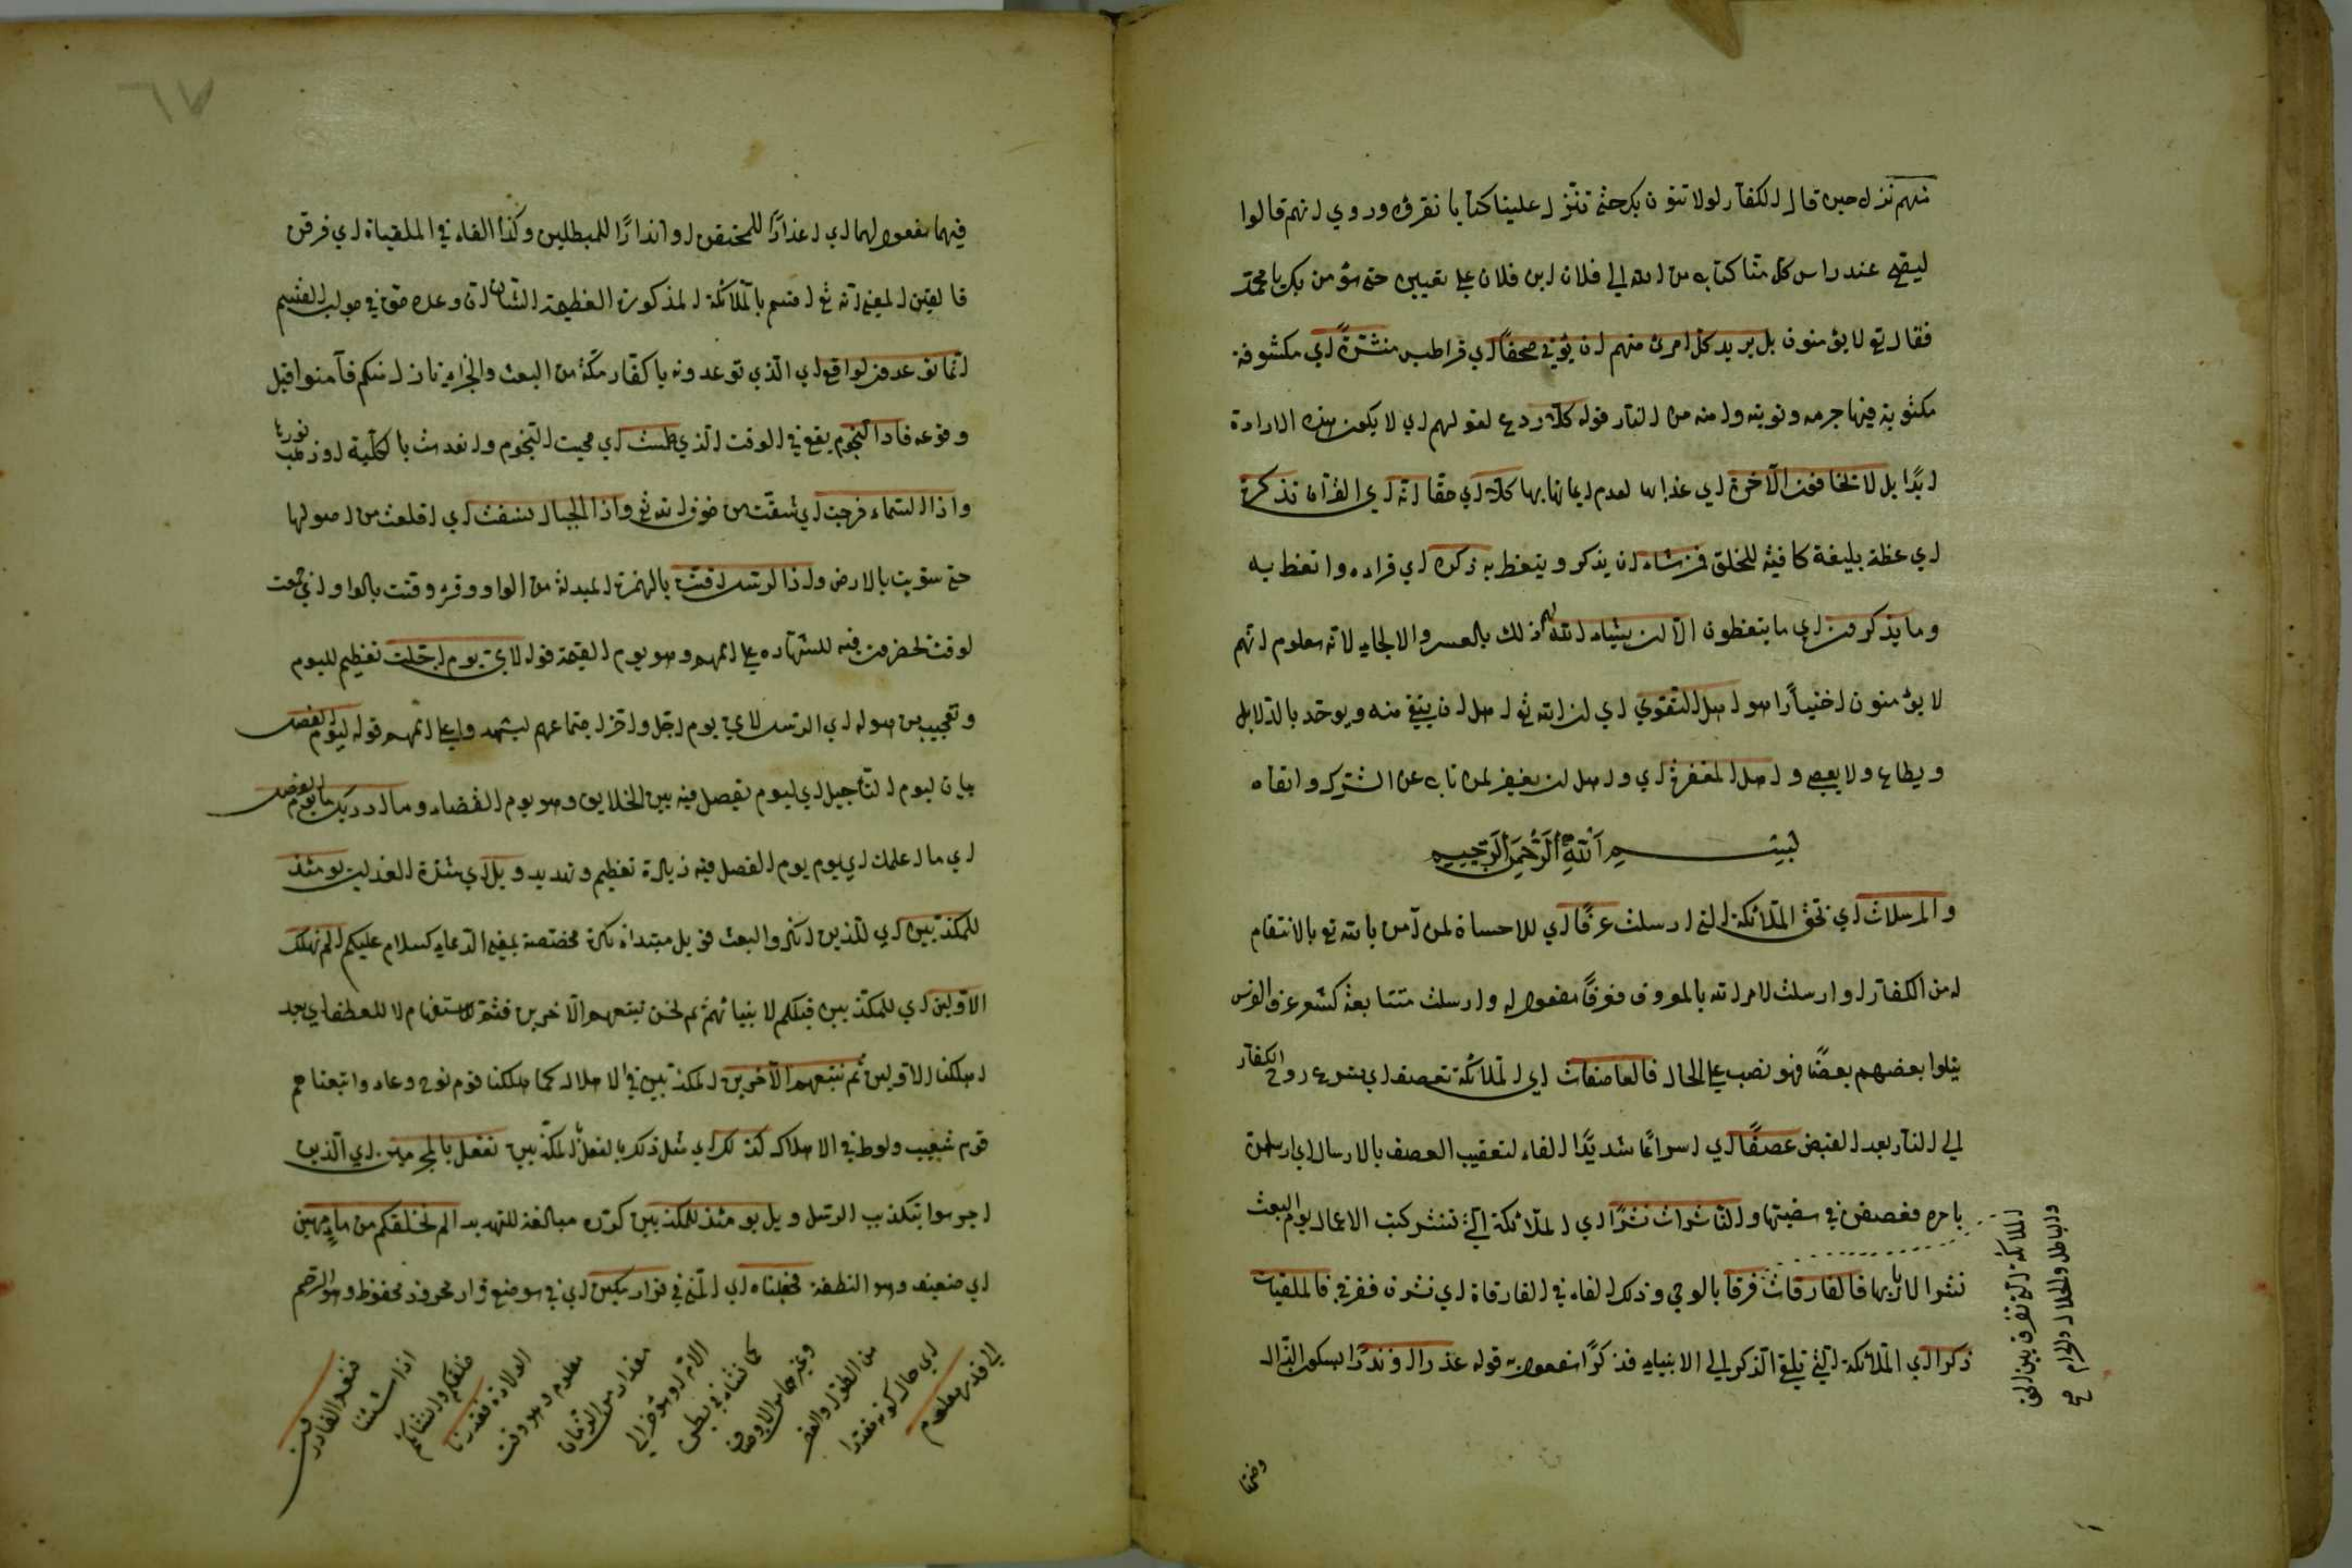 منهم نزل حين قال الكفار لولا نؤمن بك حتى تنزل علينا كتابا نقرؤه وروي انهم قالوا
ليصبح عند راس كل منا كتاب من الله الى فلان ابن فلان على تعيينه حتى نؤمن بك يا محمد
فقال تع لا يؤمنون بل يريد كل امرئ منهم ان يؤتى صحفًا اي قراطيس منشرةً اي مكشوفة
مكتوبة فيها جرمه وتوبته وامنه من النار قوله كلا ردع لقولهم اي لا يكون هذه الارادة
ابدًا بل لا تخافون الآخرة اي عذابها لعدم ايمانها بها كلا اي حقا انه اي القرآن تذكرة
اي عظة بليغة كافية للخلق فمن شاء ان يذكر ويتعظ به ذكره اي قراه واتعظ به
وما يذكرون اي ما يتعظون الا ان يشاء الله لهم ذلك بالعسر والالجاء لانه معلوم انهم
لا يؤمنون اختيارًا هو اهل التقوى اي ان الله تع اهل ان يتقى منه ويوحد بالدلايل
ويطاع ولا يعصى واهل المغفرة اي واهل ان يغفر لمن تاب عن الشرك واتقاه
بسم الله الرحمن الرحيم
والمرسلات اي بحق الملائكة التي ارسلت عرفًا اي للاحسان لمن آمن بالله تع بالانتقام
له من الكفار او ارسلت لامر الله بالمعروف فعرفًا مفعول له وارسلت متتابعة كشعر عرف الفرس
يتلوا بعضهم بعضًا فهو نصب على الحال فالعاصفات اي الملائكة تعصف اي بنزع روح الكفار
الى النار بعد القبض عصفًا اي اسراعًا شديدًا الفاء لتعقيب العصف بالارسال اي ارسلن
بامره فعصفن في مضيها والناشرات نشرًا اي الملائكة التي تنشر كتب الاعمال يوم البعث
نشرا لاربابها فالفارقات فرقا بالوحي وذلك الفاء في الفارقاة اي نشرن ففرقن فالملقيات
ذكرا اي الملائكة التي تلقي الذكر الى الانبياء فذكرًا مفعول به قوله عذرا او نذرًا بسكون الذال
الملائكة التي تفرق بين الحق
والباطل والحلال والحرام صح
فيهما مفعول لهما اي اعذارًا للمحقين او انذارًا للمبطلين وكذا الفاء في الملقياة اي فرقن
فالقين المعنى انه تع اقسم بالملائكة المذكورة العظيمة الشان ان وعده حق في جواب القسم
انما توعدون لواقع اي الذي توعدونه يا كفار مكة من البعث والجزاء نازل بكم فآمنوا قبل
وقوعه فاذا النجوم يقع في الوقت الذي طمست اي محيت النجوم وانعدمت بالكلية او ذهب نورها
واذا السماء فرجت اي شقت من خوف الله تع واذا الجبال نسفت اي اقلعت من اصولها
حتى سويت بالارض واذا الرسل اقتت بالهمزة المبدلة من الواو وقرئ وقتت بالواو اي جمعت
لوقت يحضرون فيه للشهادة على اممهم وهو يوم القيمة قوله لاي يوم اجلت تعظيم لليوم
وتعجيب من هوله اي الرسل لاي يوم اجل واخر اجتماعهم ليشهدوا على اممهم قوله ليوم الفصل
بيان ليوم التاجيل اي ليوم يفصل فيه بين الخلايق وهو يوم القضاء وما ادريك ما يوم الفصل
اي ما اعلمك اي يوم يوم الفصل فيه زيادة تعظيم وتهديد ويل اي شدة العذاب يومئذ
للمكذبين اي للذين انكروا البعث فويل مبتداء نكرة مختصة بمعنى الدعاء كسلام عليكم الم نهلك
الاولين اي المكذبين قبلكم لانبيائهم ثم نحن نتبعهم الآخرين فثم للاستفهام لا للعطف اي بعد
اهلكنا الاولين ثم نتبعهم الآخرين المكذبين في الاهلاك كما اهلكنا قوم نوح وعاد واتبعناهم
قوم شعيب ولوط في الاهلاك كذلك اي مثل ذلك بالفعل المكذبين نفعل بالمجرمين اي الذين
اجرموا بتكذيب الرسل ويل يومئذ للمكذبين كرره مبالغة للتهديد الم نخلقكم من ماء مهين
اي ضعيف وهو النطفة فجعلناه اي المني في قرار مكين اي في موضع قرار محروز محفوظ وهو الرحم
الى قدر معلوم
اي حال كونه مقدرا
من الطول والقصر
وغيرهما من الاوصاف
كما نشاء في بطن
الام او مؤخر الى
مقدار من الزمان
معلوم وهو وقت
الولادة فقدرنا
خلقكم وانشاكم
اذا شئنا
فنعم القادرون
وضمها
٦٧